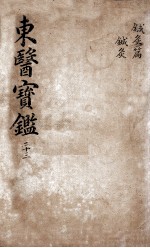 鍼灸篇
鍼灸
東醫寶鑑 二十三